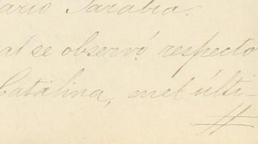 ario Sarabia.
al se observó respecto
Catalina, en el últi-